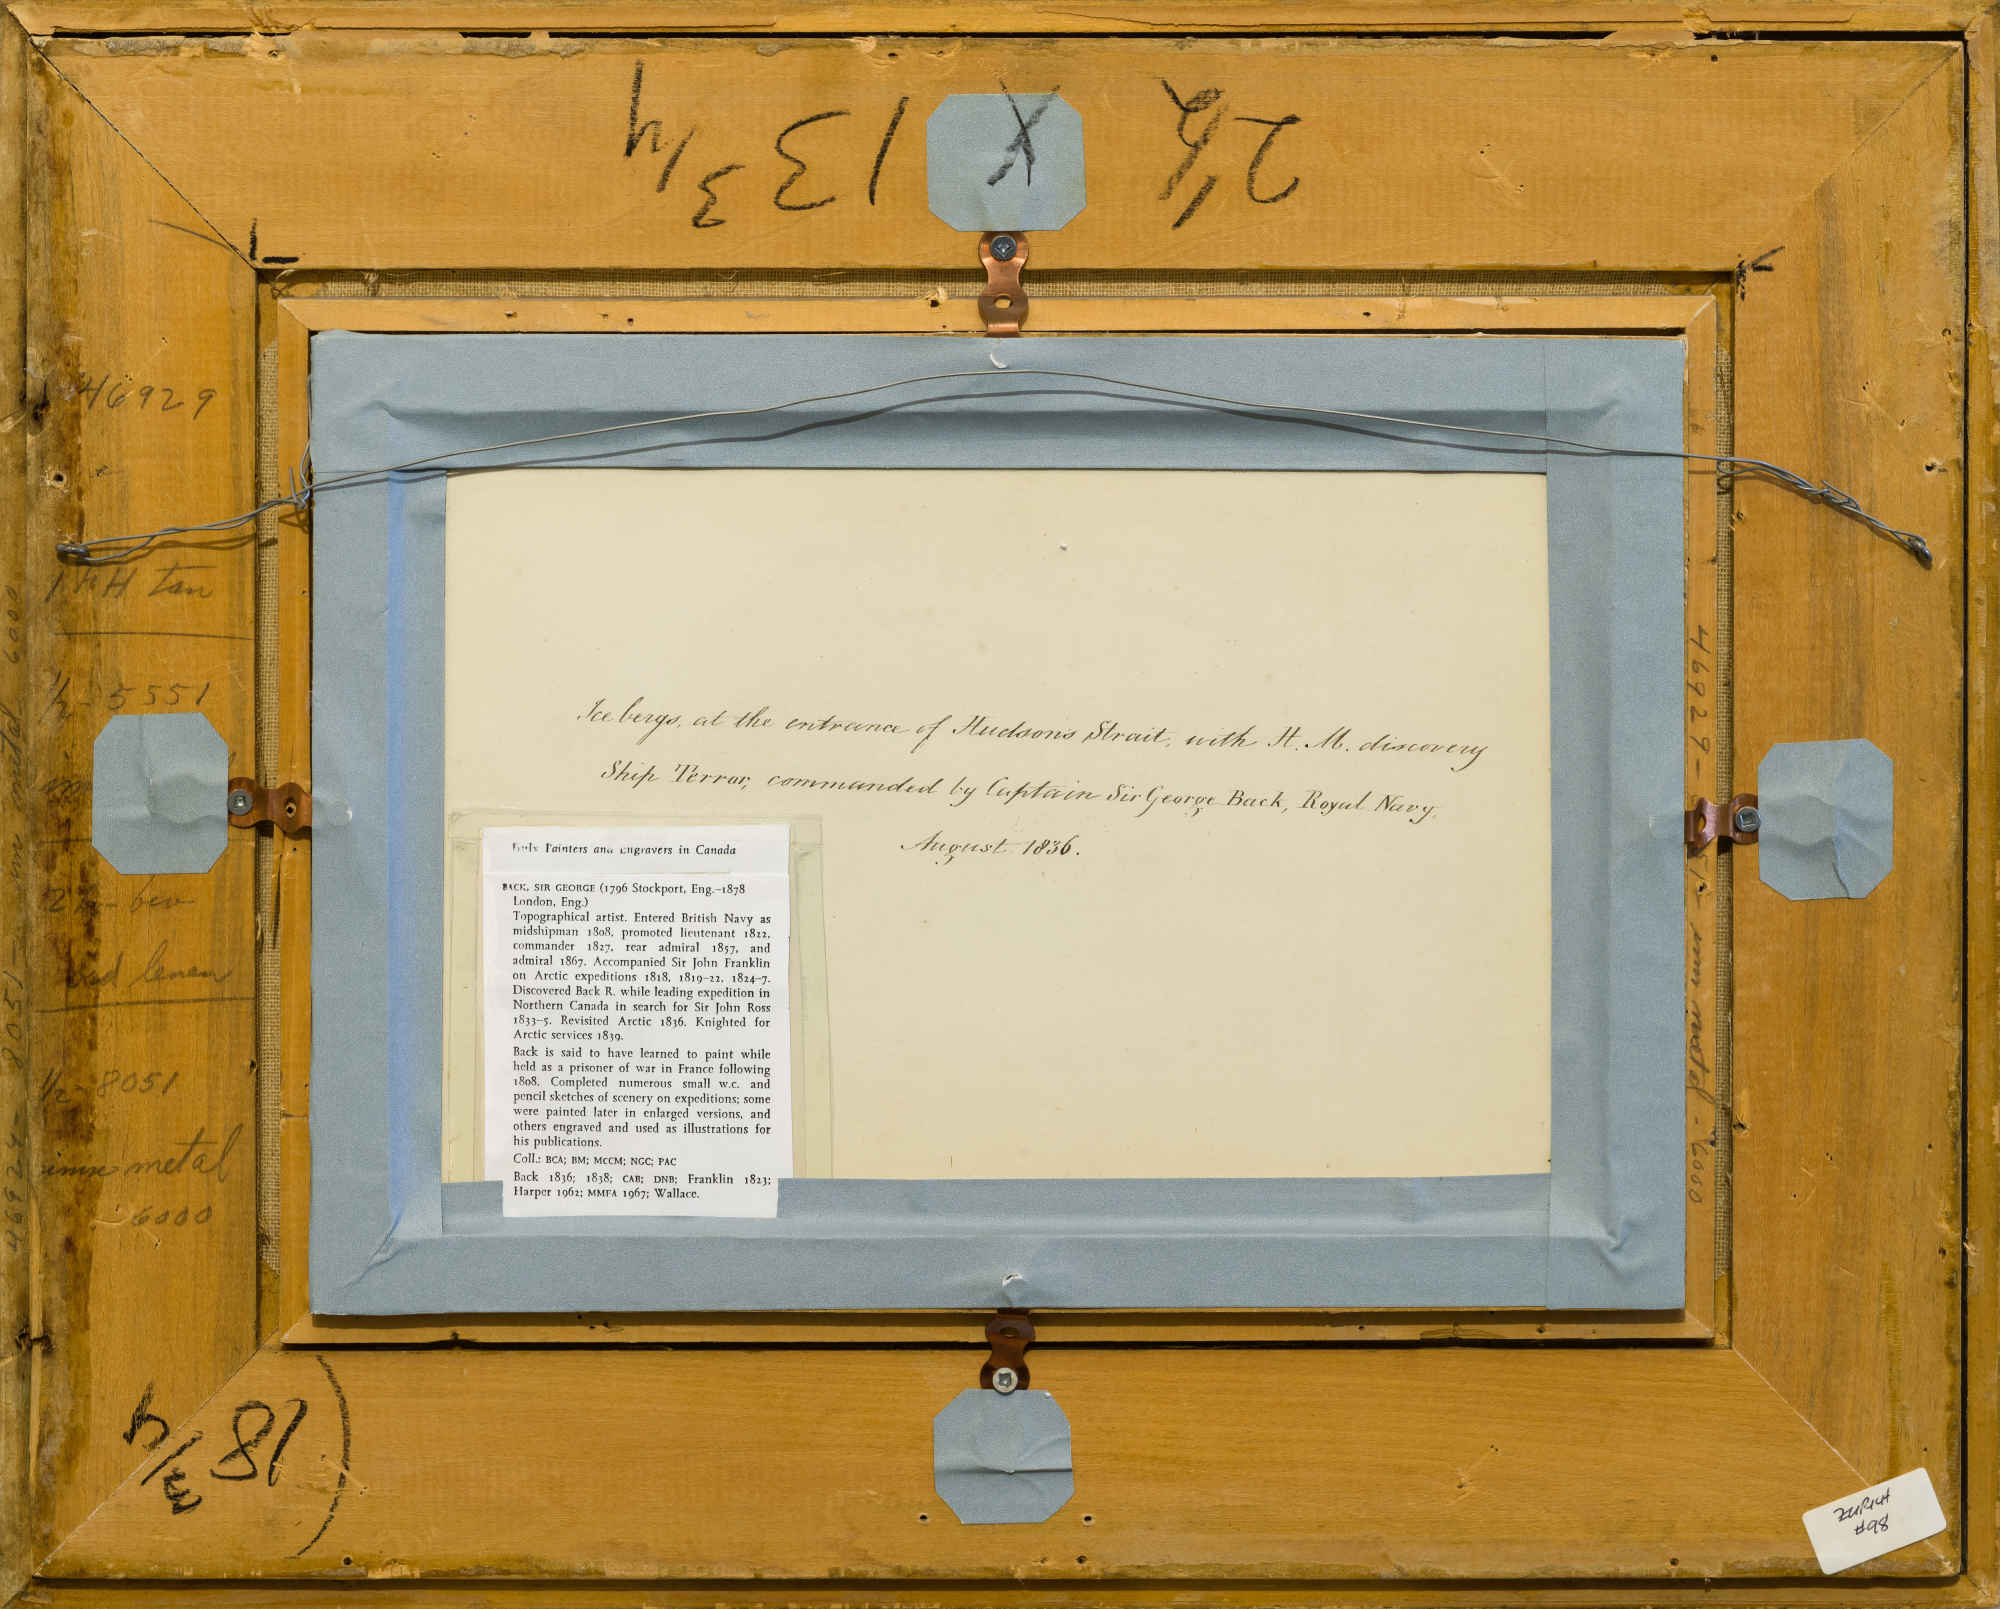 13 3/4
X
46929
tan
1/2 - 5551
Icebergs, at the entrance of Hudsons Strait, with H. M. discovery
Ship Terror, commanded by Captain Sir George Back, Royal Navy,
August 1836.
Painters and Engravers in Canada
BACK, SIR GEORGE (1796 Stockport, Eng.–1878
London, Eng.)
Topographical artist. Entered British Navy as
midshipman 1808, promoted lieutenant 1822,
commander 1827, rear admiral 1857, and
admiral 1867. Accompanied Sir John Franklin
on Arctic expeditions 1818, 1819–22, 1824–7.
Discovered Back R. while leading expedition in
Northern Canada in search for Sir John Ross
1833–5. Revisited Arctic 1836. Knighted for
Arctic services 1839.
Back is said to have learned to paint while
held as a prisoner of war in France following
1808. Completed numerous small w.c. and
pencil sketches of scenery on expeditions; some
were painted later in enlarged versions, and
others engraved and used as illustrations for
his publications.
Coll.: BCA; BM; MCCM; NGC; PAC
Back 1836; 1838; CAB; DNB; Franklin 1823;
Harper 1962; MMFA 1967; Wallace.
1/2 - 8051
metal
6000
46929 - 8051 - metal 6000
46929 - metal - 6000
18 3/4
ZURICH
#98